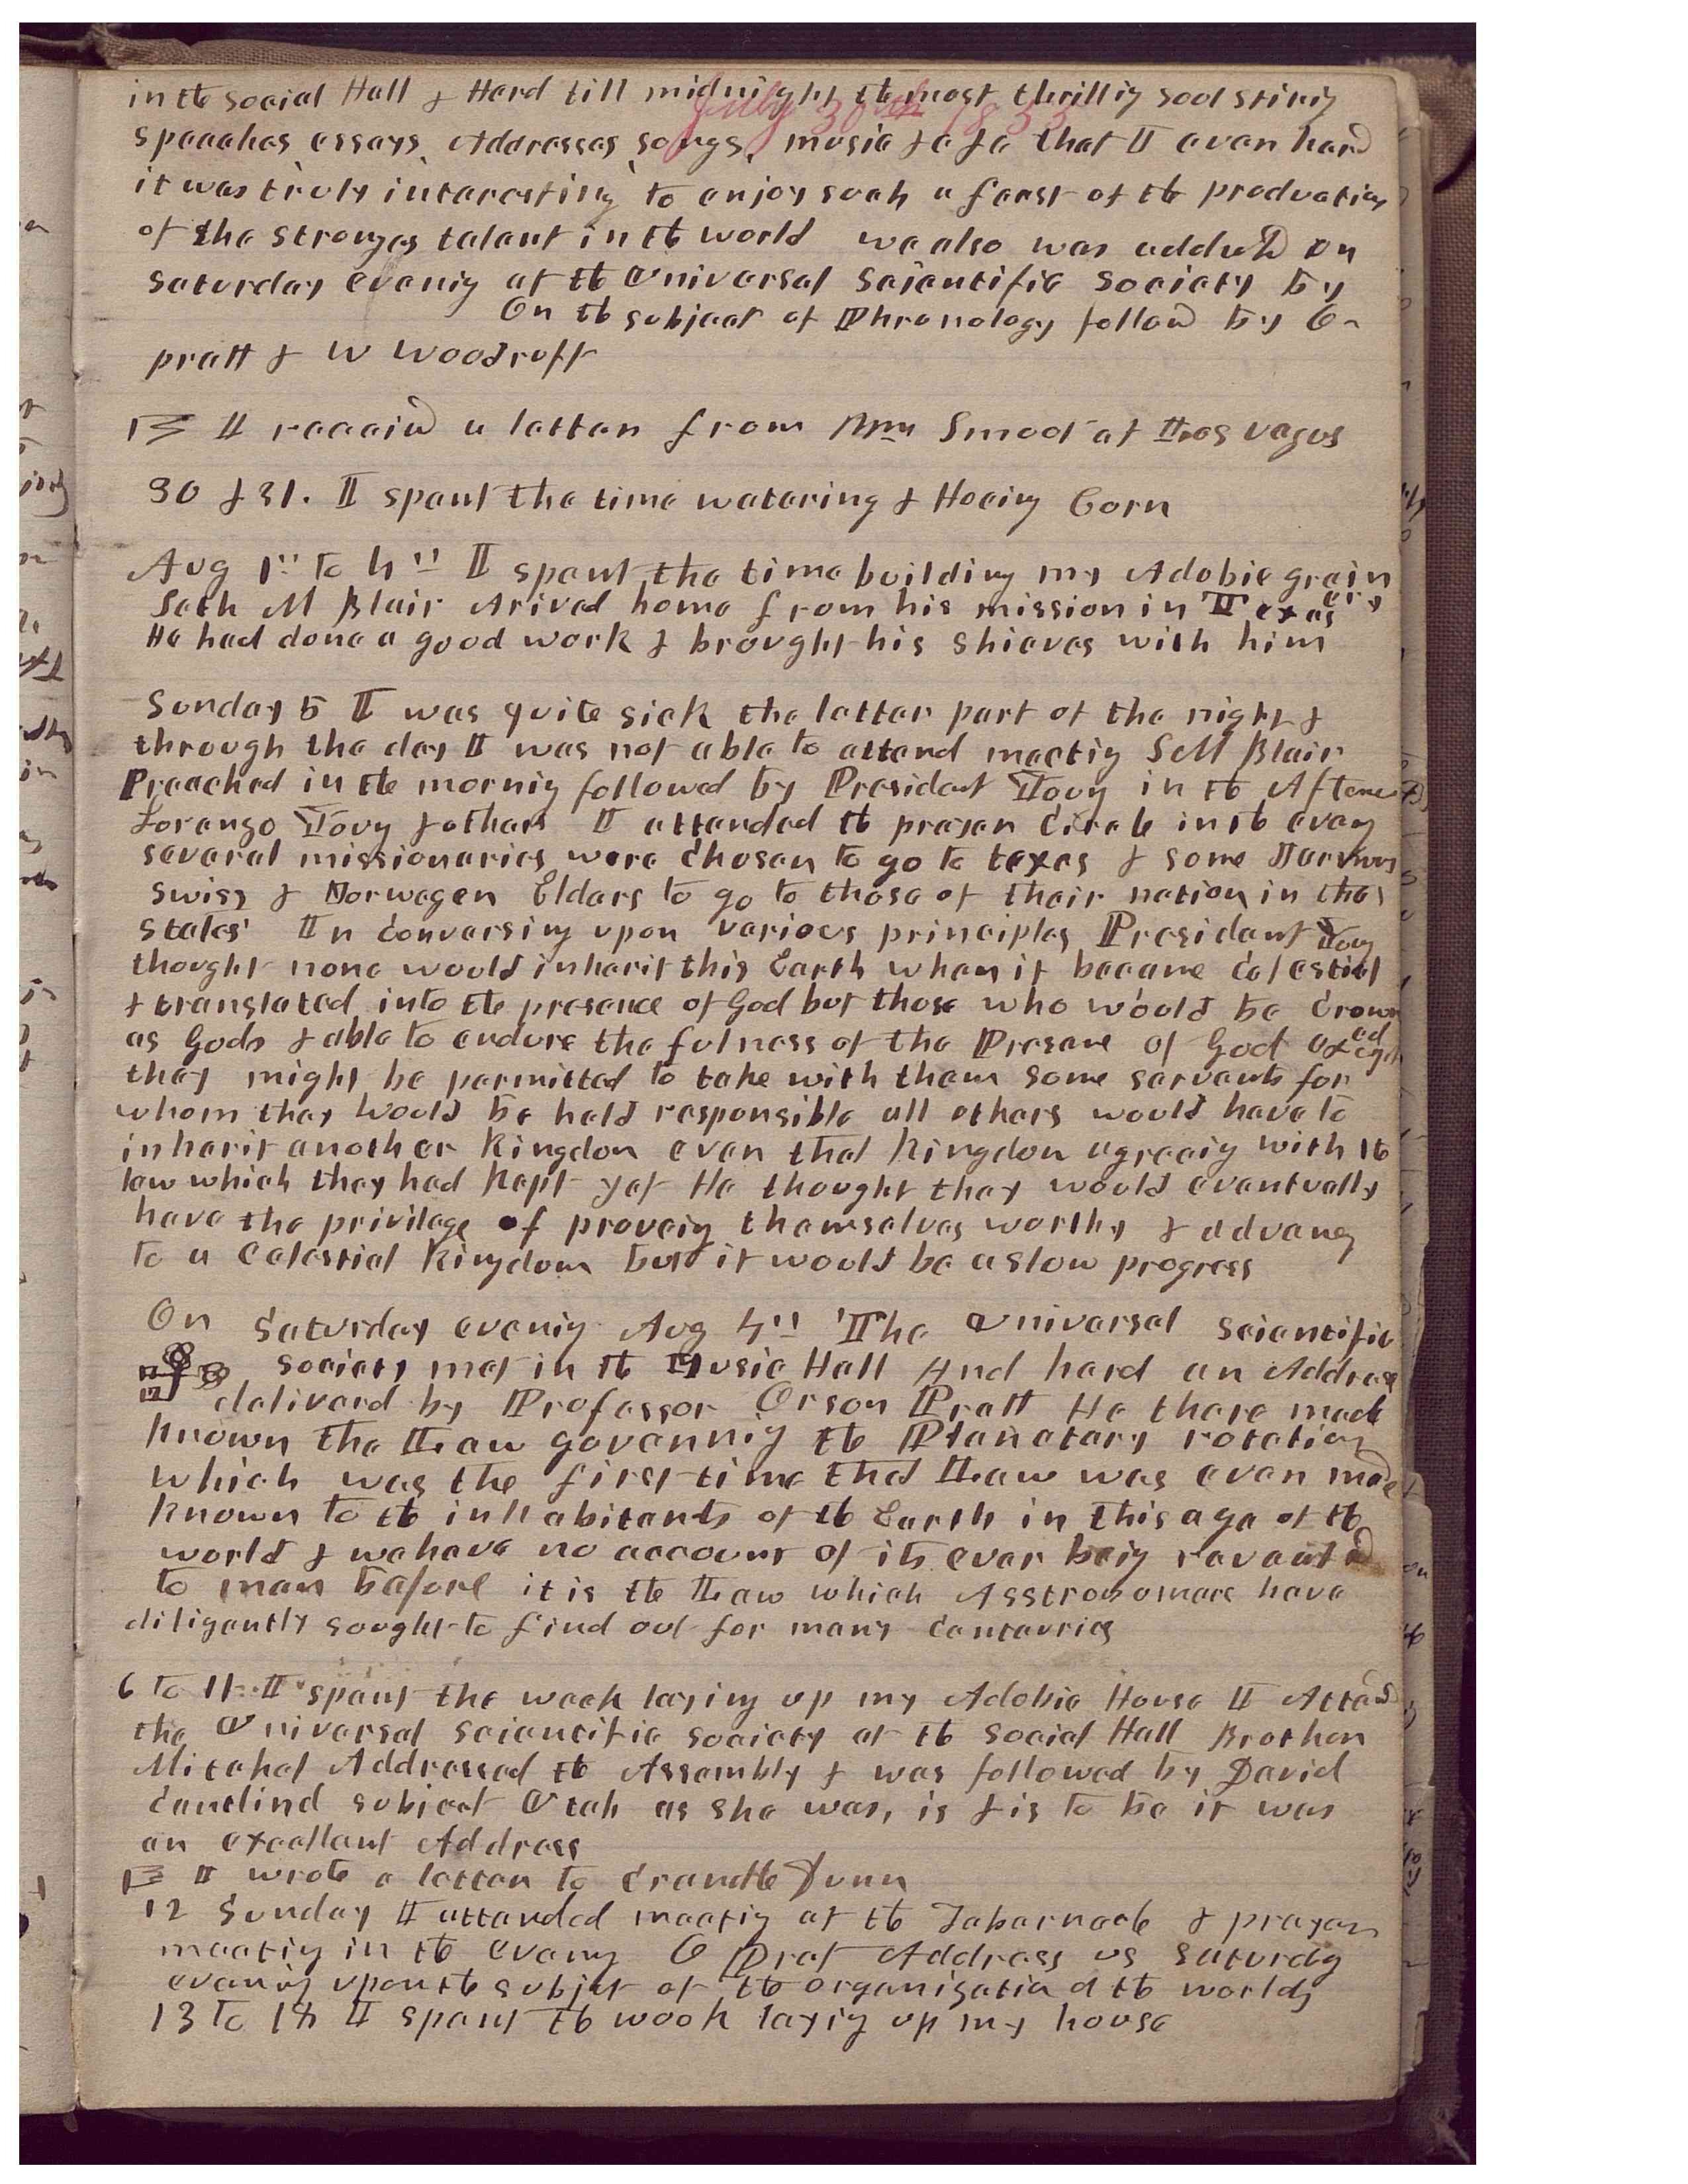 July 30th 1855
in the social Hall & Herd till midnight the most thrillig soolstirig
speeches essays, Addresses songs, music &c &c that I ever herd
it was truly interesting to enjoy such a feast of the production
of the stronges talent in the world we also was addressed on
saturday evenig at the Universal Scientific Society by
On the subject of Phronology follow by O-
pratt & W Woodruff
I receivd a letter from Wm Smoot at Las vagus
30 & 31. I spent the time watering & Hoeing Corn
Aug 1st to 4th I spent the time building my Adobie grainery
Seth M Blair Arived home from his mission in Texas
He had done a good work & brought his shieves with him
Sunday 5 I was quite sick the latter part of the night &
through the day I was not able to attend meetig S M Blair
Preached in the mornig followed by President Young in the Afternn
Lorenzo Young & others I attended the prayer Circle in the eveng
several missionaries were Chosen to go to texas & some
Swiss & Norwegen Elders to go to those of their nation in the
States In Conversing upon various principles President Young
thought none would inherit this Earth when it became Celestial
& translated into the presence of God but those who would be Crowned
as Gods & able to endure the fulness of the Presence of God except
they might be permitted to take with them some servants for
whom they would be held responsible all others would have to
inherit another Kingdom even that Kingdom agreeig with the
law which they had Kept yet He thought they would eventually
have the privilege of proveig themselves worthy & advancg
to a Celestial Kingdom but it would be a slow progress
On saturday evenig Aug 4th The Universal scientific
society met in the Music Hall And herd an Address
delivered by Professor Orson Pratt He there made
known the Law governnig the Planatary rotation
which was the first time that Law was ever made
known to the inhabitants of the Earth in this age of the
world & we have no account of its ever beig
to man before it is the Law which Asstronomers have
diligently sought to find out for many Centauries
6 to 11 I spent the week laying up my Adobie House I Attend
the Universal scientific society at the social Hall Brother
Mitchel Addressed the Assembly & was followed by David
Candlind subject Utah as she was, is & is to be it was
an excellent Address
I wrote a letter to Crandle Dunn
12 Sunday I attended meetig at the Tabernacle & prayer
meetig in the eveng O Prat Address us saturdy
evenig upon the subjet of the organisatin of the worlds
13 to 18 I spent the week layig up my house